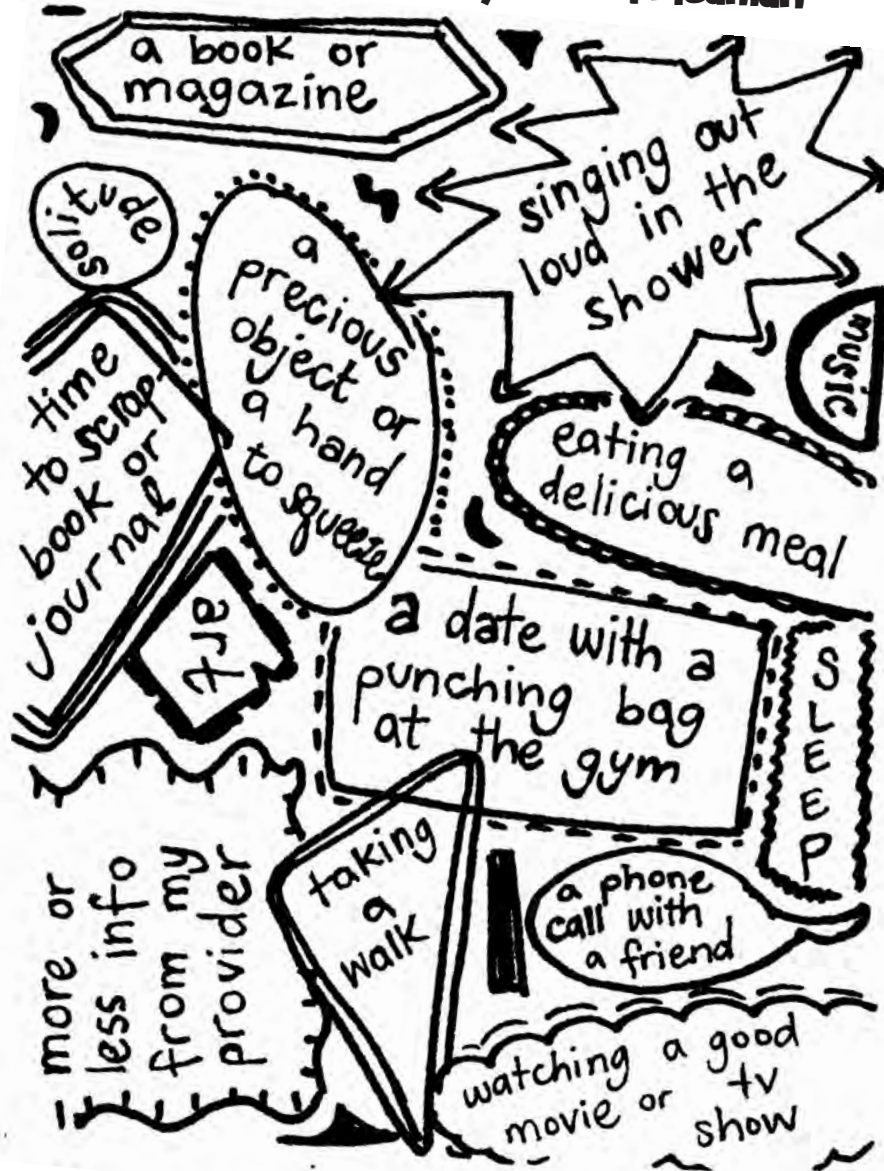 a book or
magazine
singing out
loud in the
shower
solitude
a
precious
object or
a hand
to squeeze
music
time
to scrap-
book or
journal
eating a
delicious meal
art
a date with a
punching bag
at the gym
SLEEP
more or
less info
from my
provider
taking
a
walk
a phone
call with
a friend
watching a good
movie or tv
show